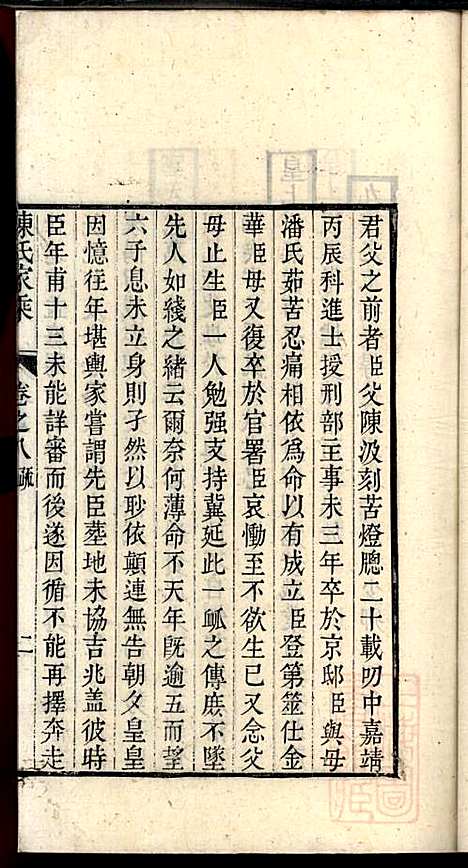 君父之前者臣父陳汲刻苦燈牕二十載叨中嘉靖
丙辰科進士授刑部主事未三年卒於京邸臣與母
潘氏茹苦忍痛相依爲命以有成立臣登第筮仕金
華臣母又復卒於官署臣哀慟至不欲生已又念父
母止生臣一人勉强支持冀延此一㼌之傳庻不墜
先人如綫之緒云爾奈何薄命不天年旣逾五而望
六子息未立身則孑然以眇依顛連無告朝夕皇皇
因憶往年堪輿家嘗謂先臣墓地未協吉兆盖彼時
臣年甫十三未能詳審而後遂因循不能再擇奔走
陳氏家乘 卷之八 疏 二